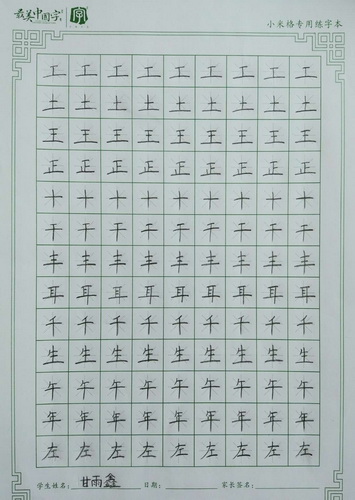 最美中国字 字
小米格专用练字本
工 工 工 工 工 工 工 工 工
土 土 土 土 土 土 土 土 土
王 王 王 王 王 王 王 王 王
正 正 正 正 正 正 正 正 正
十 十 十 十 十 十 十 十 十
干 干 干 干 干 干 干 干 干
丰 丰 丰 丰 丰 丰 丰 丰 丰
耳 耳 耳 耳 耳 耳 耳 耳 耳
千 千 千 千 千 千 千 千 千
生 生 生 生 生 生 生 生 生
午 午 午 午 午 午 午 午 午
年 年 年 年 年 年 年 年 年
左 左 左 左 左 左 左 左 左
学生姓名: 甘雨鑫 日期: 家长签名: